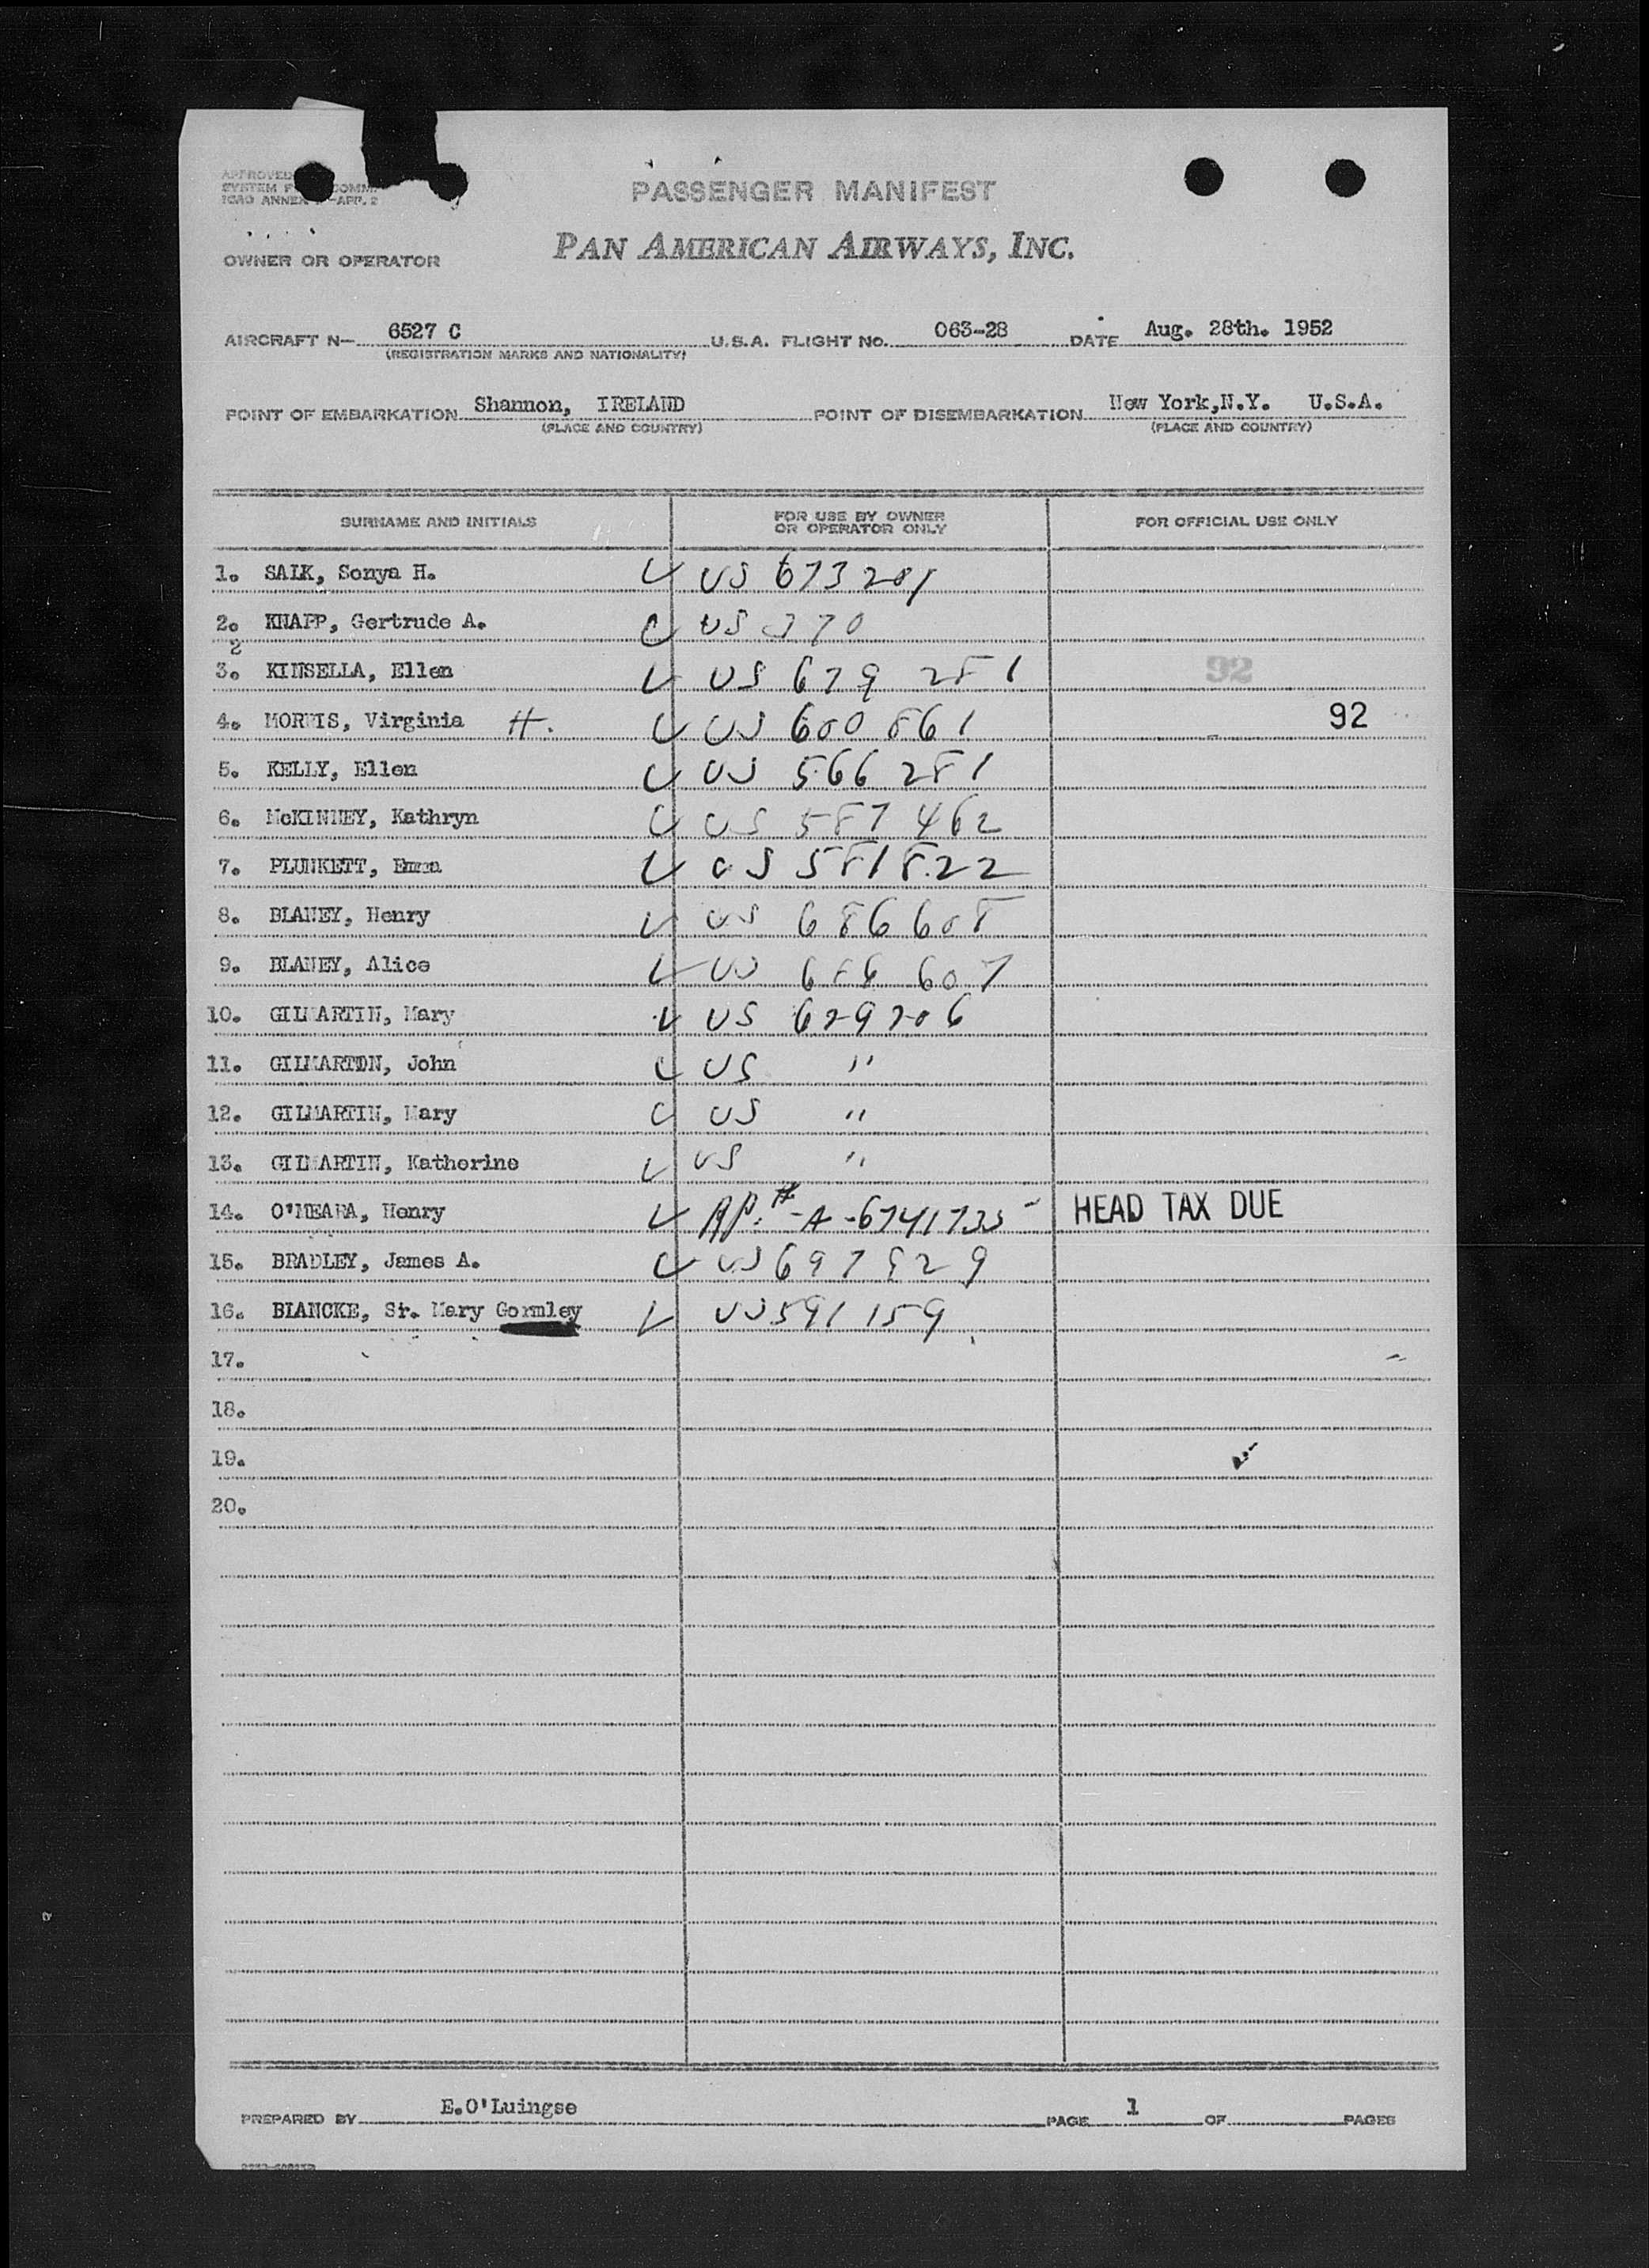 APPROVED
SYSTEM F COMM.
ICAO ANNEX —APP. 2
PASSENGER MANIFEST
OWNER OR OPERATOR PAN AMERICAN AIRWAYS, INC.
AIRCRAFT N— 6527 C U.S.A. FLIGHT NO. 063-28 DATE Aug. 28th. 1952
(REGISTRATION MARKS AND NATIONALITY)
POINT OF EMBARKATION Shannon, IRELAND POINT OF DISEMBARKATION New York,N.Y. U.S.A.
(PLACE AND COUNTRY) (PLACE AND COUNTRY)
SURNAME AND INITIALS FOR USE BY OWNER OR OPERATOR ONLY FOR OFFICIAL USE ONLY
1. SALK, Sonya H. US 673201
2. KNAPP, Gertrude A. US 370
2
3. KINSELLA, Ellen US 679 281 92
4. MORRIS, Virginia H. US 600 861 92
5. KELLY, Ellen US 566 281
6. McKINNEY, Kathryn US 587 462
7. PLUNKETT, Emma US 581822
8. BLANEY, Henry US 686608
9. BLANEY, Alice US 686 607
10. GILMARTIN, Mary US 629206
11. GILMARTON, John US "
12. GILMARTIN, Mary US "
13. GILMARTIN, Katherine US "
14. O'MEARA, Henry RP.#-A-6741735 HEAD TAX DUE
15. BRADLEY, James A. US 697829
16. BLANCKE, Sr. Mary Gormley US 591 159
17.
18.
19.
20.
PREPARED BY E.O'Luingse PAGE 1 OF PAGES